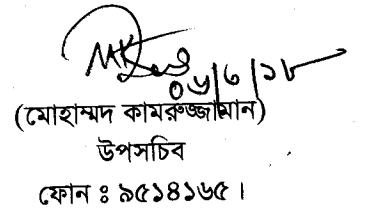 ০৬/৩/১৮
(মোহাম্মদ কামরুজ্জামান)
উপসচিব
ফোন ঃ ৯৫১৪১৬৫।